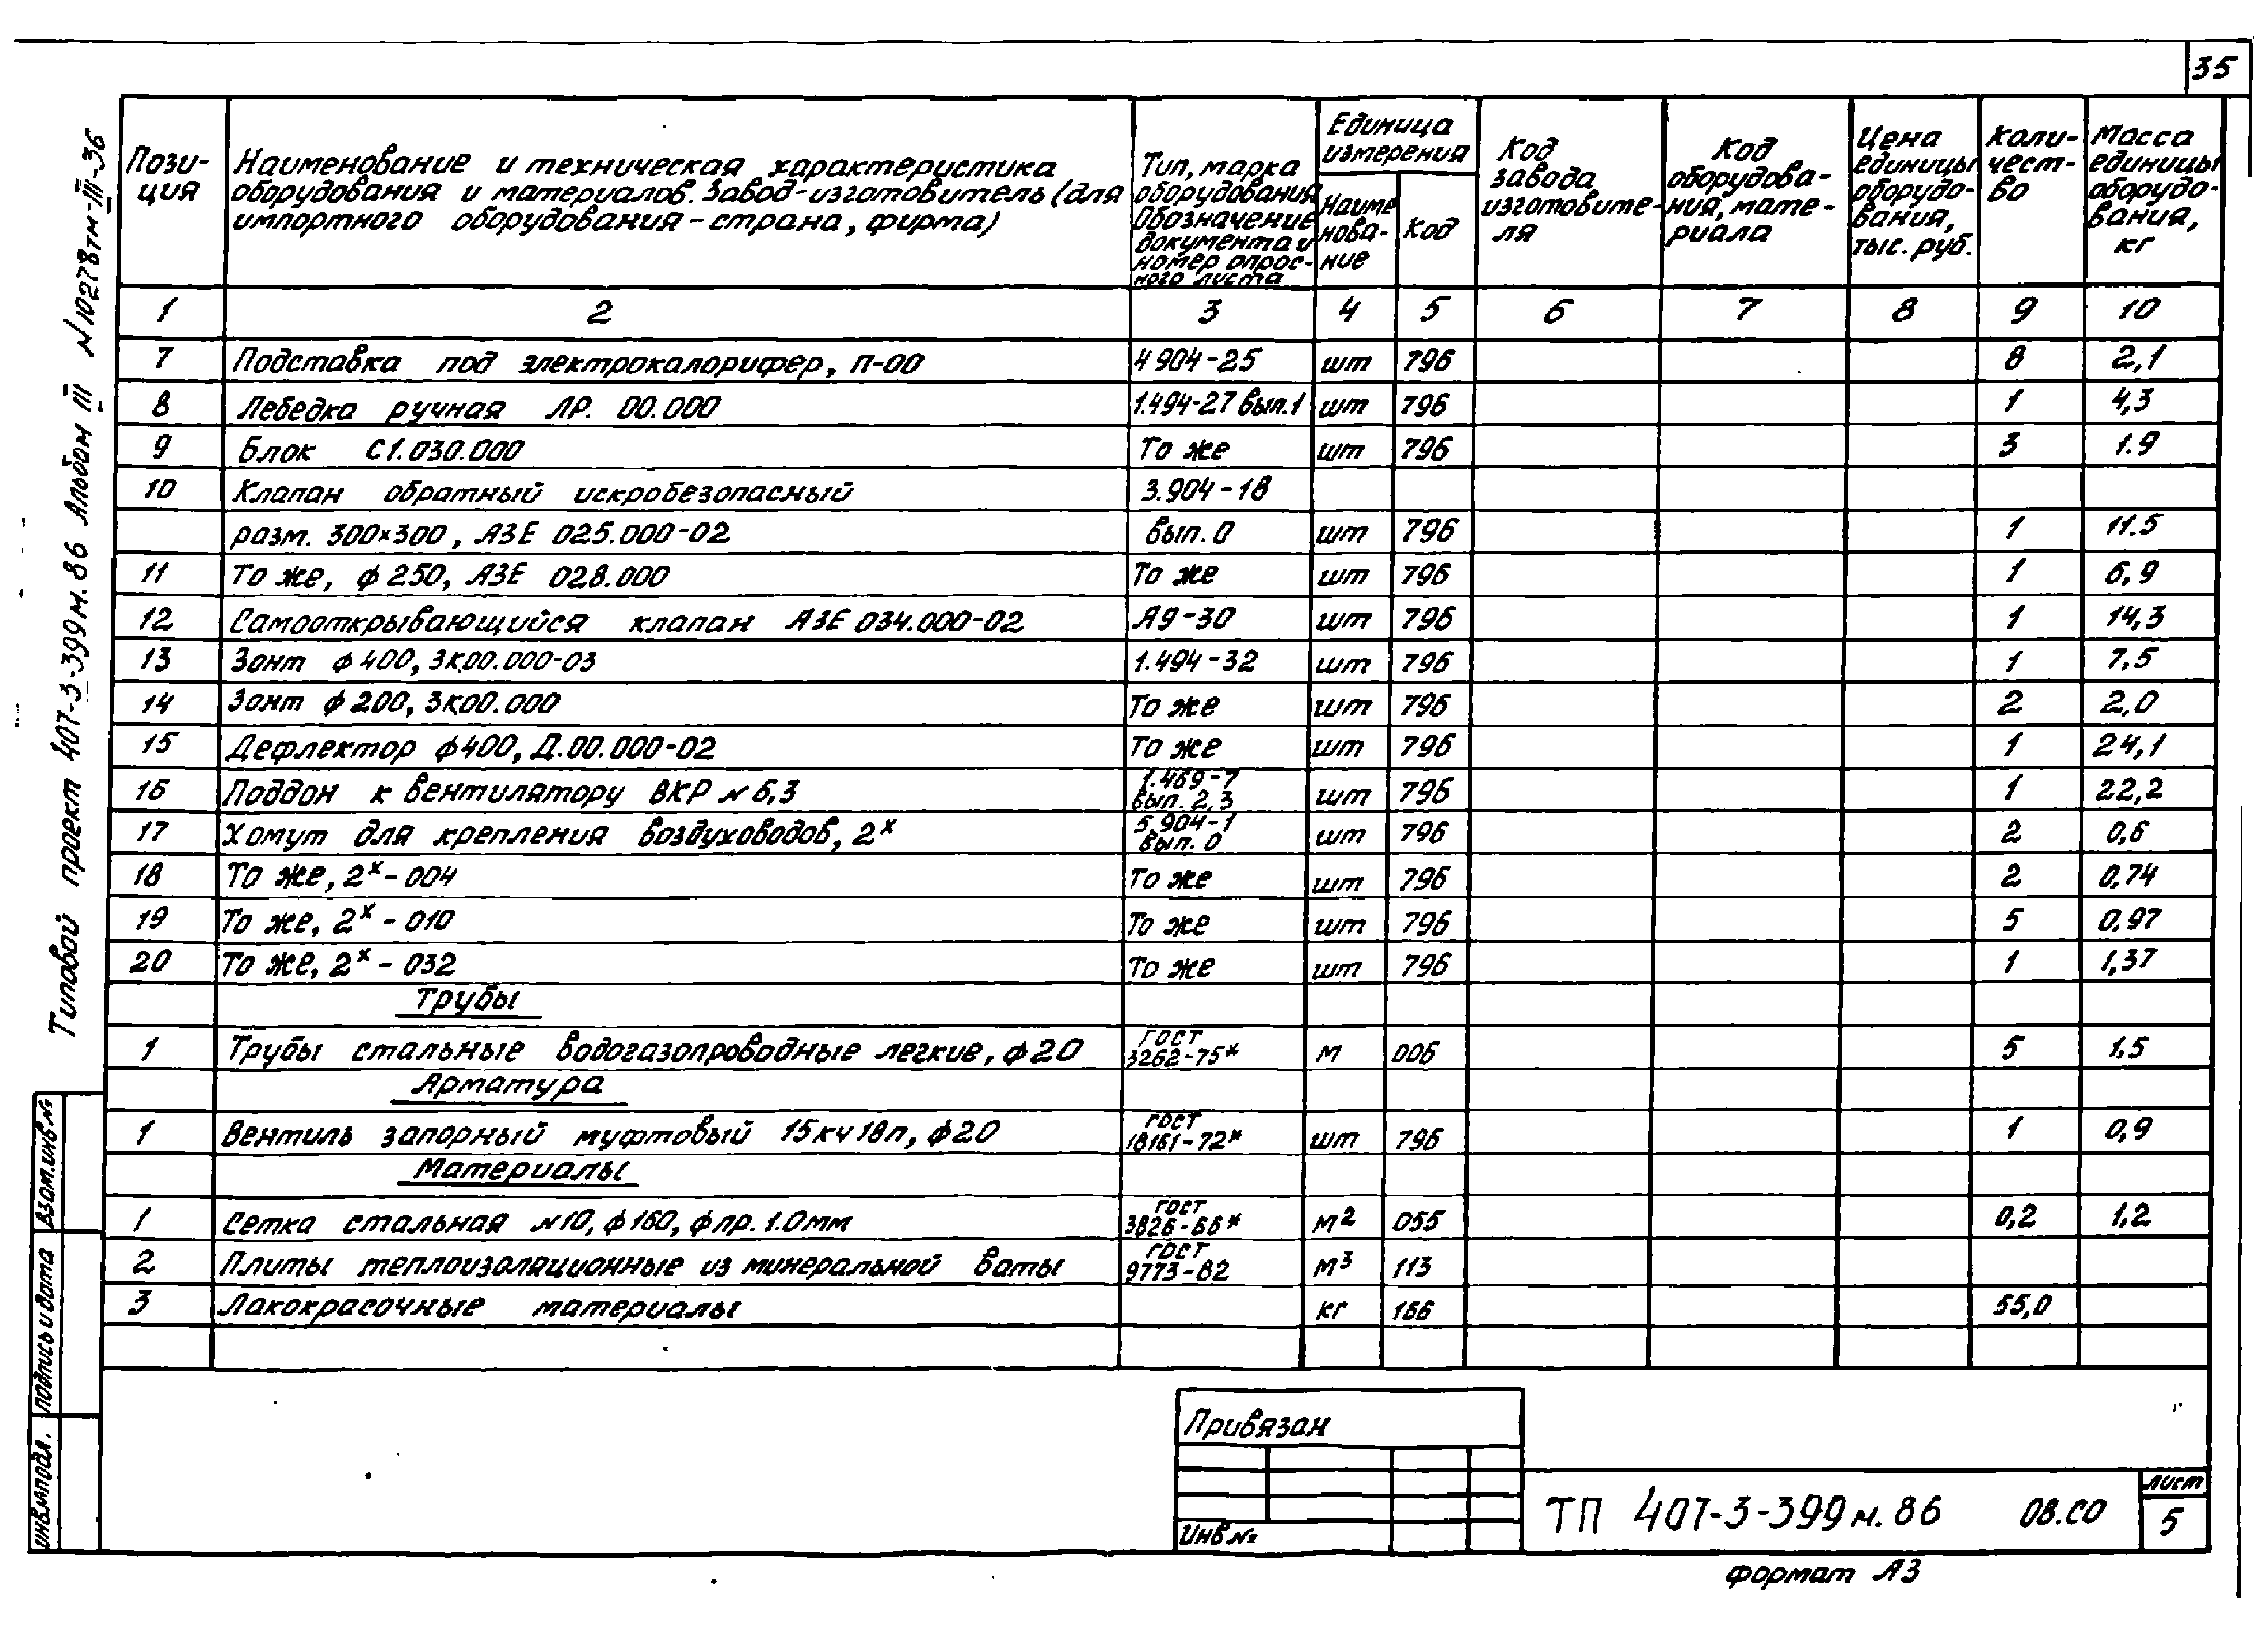 35
Типовой проект 407-3-399м.86 Альбом III N10278тм-III-36
Пози-
ция
Наименование и техническая характеристика
оборудования и материалов. Завод-изготовитель (для
импортного оборудования – страна, фирма)
Тип, марка
оборудования
Обозначение
документа и
номер опрос-
ного листа
Единица
измерения
Наиме
нова-
ние
Код
Код
завода
изготовите-
ля
Код
оборудова-
ния, мате-
риала
Цена
единицы
оборудо-
вания,
тыс. руб.
Коли-
чест-
во
Масса
единицы
оборудо-
вания,
кг
1 2 3 4 5 6 7 8 9 10
7 Подставка под электрокалорифер, П-00 4 904-25 шт 796 8 2,1
8 Лебедка ручная ЛР. 00.000 1.494-27 вып.1 шт 796 1 4,3
9 Блок С1.030.000 То же шт 796 3 1.9
10 Клапан обратный искробезопасный 3.904-18
разм. 300×300, АЗЕ 025.000-02 вып. 0 шт 796 1 11.5
11 То же, ф 250, АЗЕ 028.000 То же шт 796 1 6,9
12 Самооткрывающийся клапан АЗЕ 034.000-02 А9-30 шт 796 1 14,3
13 Зонт ф 400, ЗК00.000-03 1.494-32 шт 796 1 7,5
14 Зонт ф 200, ЗК00.000 То же шт 796 2 2,0
15 Дефлектор ф400, Д.00.000-02 То же шт 796 1 24,1
16 Поддон к вентилятору ВКР N 6,3 1.469-7 вып. 2,3 шт 796 1 22,2
17 Хомут для крепления воздуховодов, 2ˣ 5.904-1 вып. 0 шт 796 2 0,6
18 То же, 2ˣ-004 То же шт 796 2 0,74
19 То же, 2ˣ-010 То же шт 796 5 0,97
20 То же, 2ˣ-032 То же шт 796 1 1,37
Трубы
1 Трубы стальные водогазопроводные легкие, ф20 ГОСТ 3262-75* м 006 5 1.5
Арматура
1 Вентиль запорный муфтовый 15кч18п, ф20 ГОСТ 18161-72* шт 796 1 0,9
Материалы
1 Сетка стальная N10, ф160, ф пр. 1.0мм ГОСТ 3826-66* м² 055 0,2 1,2
2 Плиты теплоизоляционные из минеральной ваты ГОСТ 9773-82 м³ 113
3 Лакокрасочные материалы кг 166 55,0
Взам.инв.№
Подпись и дата
Инв.№подл.
Привязан
Инв №
ТП 407-3-399м.86 ОВ.СО
лист
5
формат А3